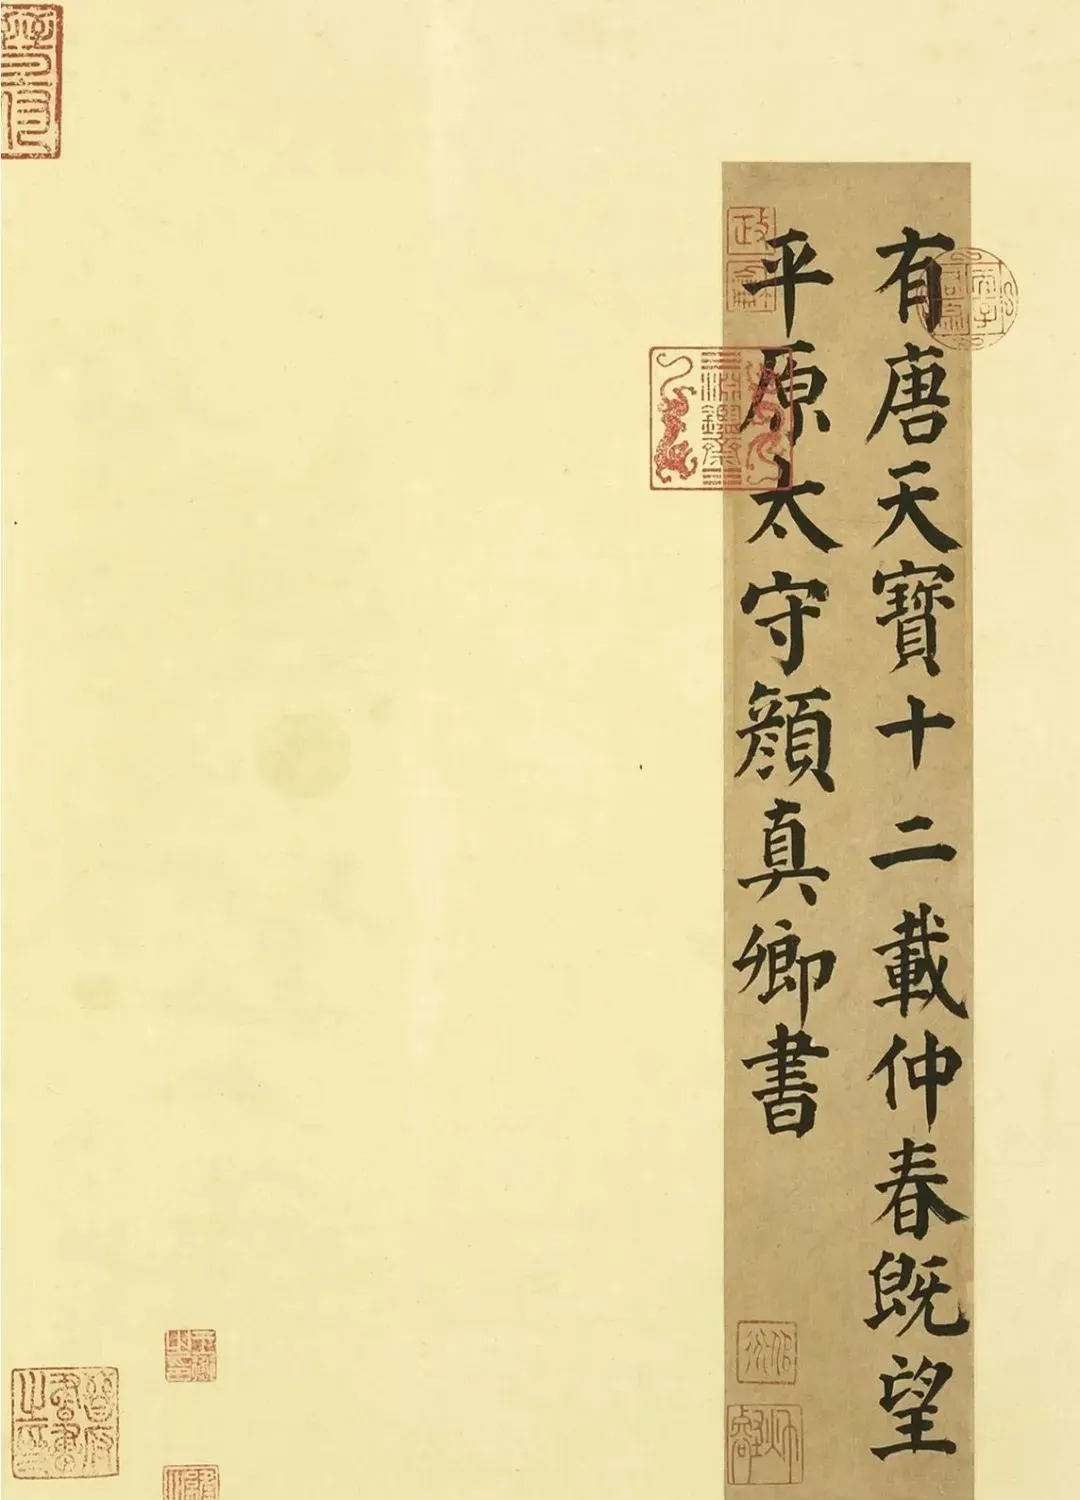 有唐天寶十二載仲春既望
平原太守顏真卿書